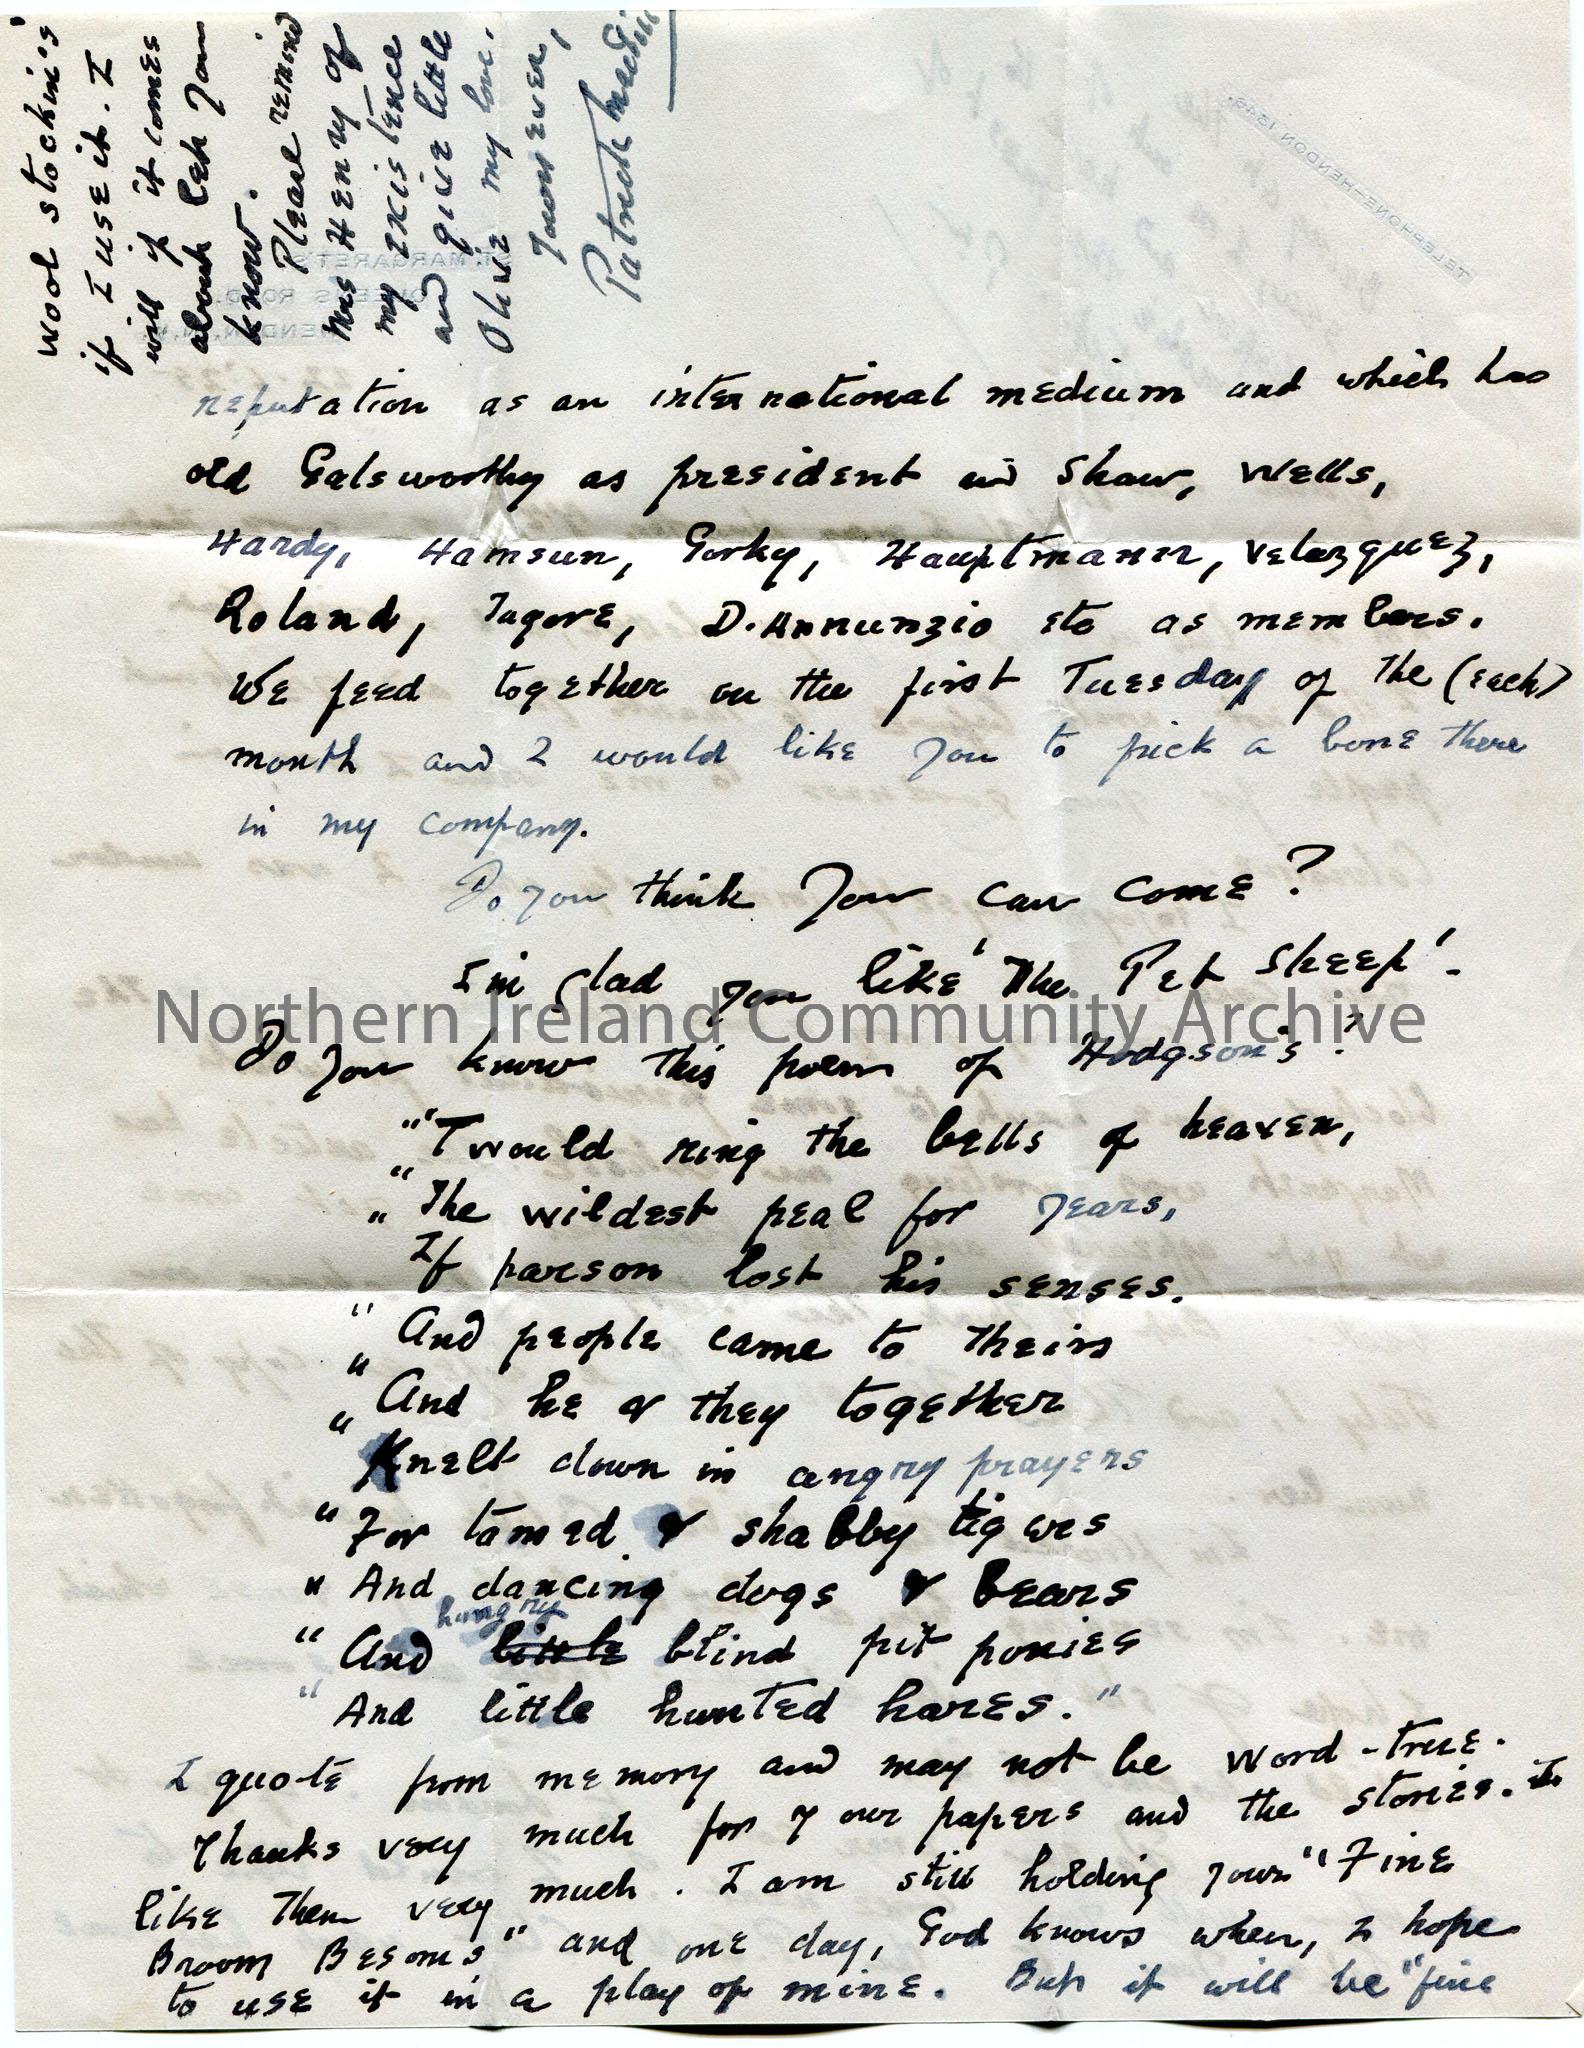 reputation as an international medium and which has
old Galsworthy as president and Shaw, Wells,
Hardy, Hamsun, Gorky, Hauptmann, Velazquez,
Roland, Tagore, D.Annunzio etc as members.
We feed together on the first Tuesday of the (each)
month and I would like you to pick a bone there
in my company.
Do you think you can come?
I'm glad you like 'The Pet Sheep'.
Do you know this poem of Hodgson's?
"'Twould ring the bells of heaven,
"The wildest peal for years,
"If parson lost his senses.
"And people came to theirs
"And he & they together
"Knelt down in angry prayers
"For tamed & shabby tigers
"And dancing dogs & bears
"And hungry little blind pit ponies
"And little hunted hares."
I quote from memory and may not be word-true.
Thanks very much for your papers and the stories. I
like them very much. I am still holding your "Fine
Broom Besoms" and one day, God knows when, I hope
to use it in a play of mine. But it will be "fine
wool stockin's'
if I use it. I
will if it comes
about let you
know.
Please remind
Mrs Henry of
my existence
and give little
Olive my love.
Yours ever,
Patrick
ST. MARGARET'S
QUEEN'S ROAD,
HENDON, N.W.
TELEPHONE-HENDON 1349.
Northern Ireland Community Archive